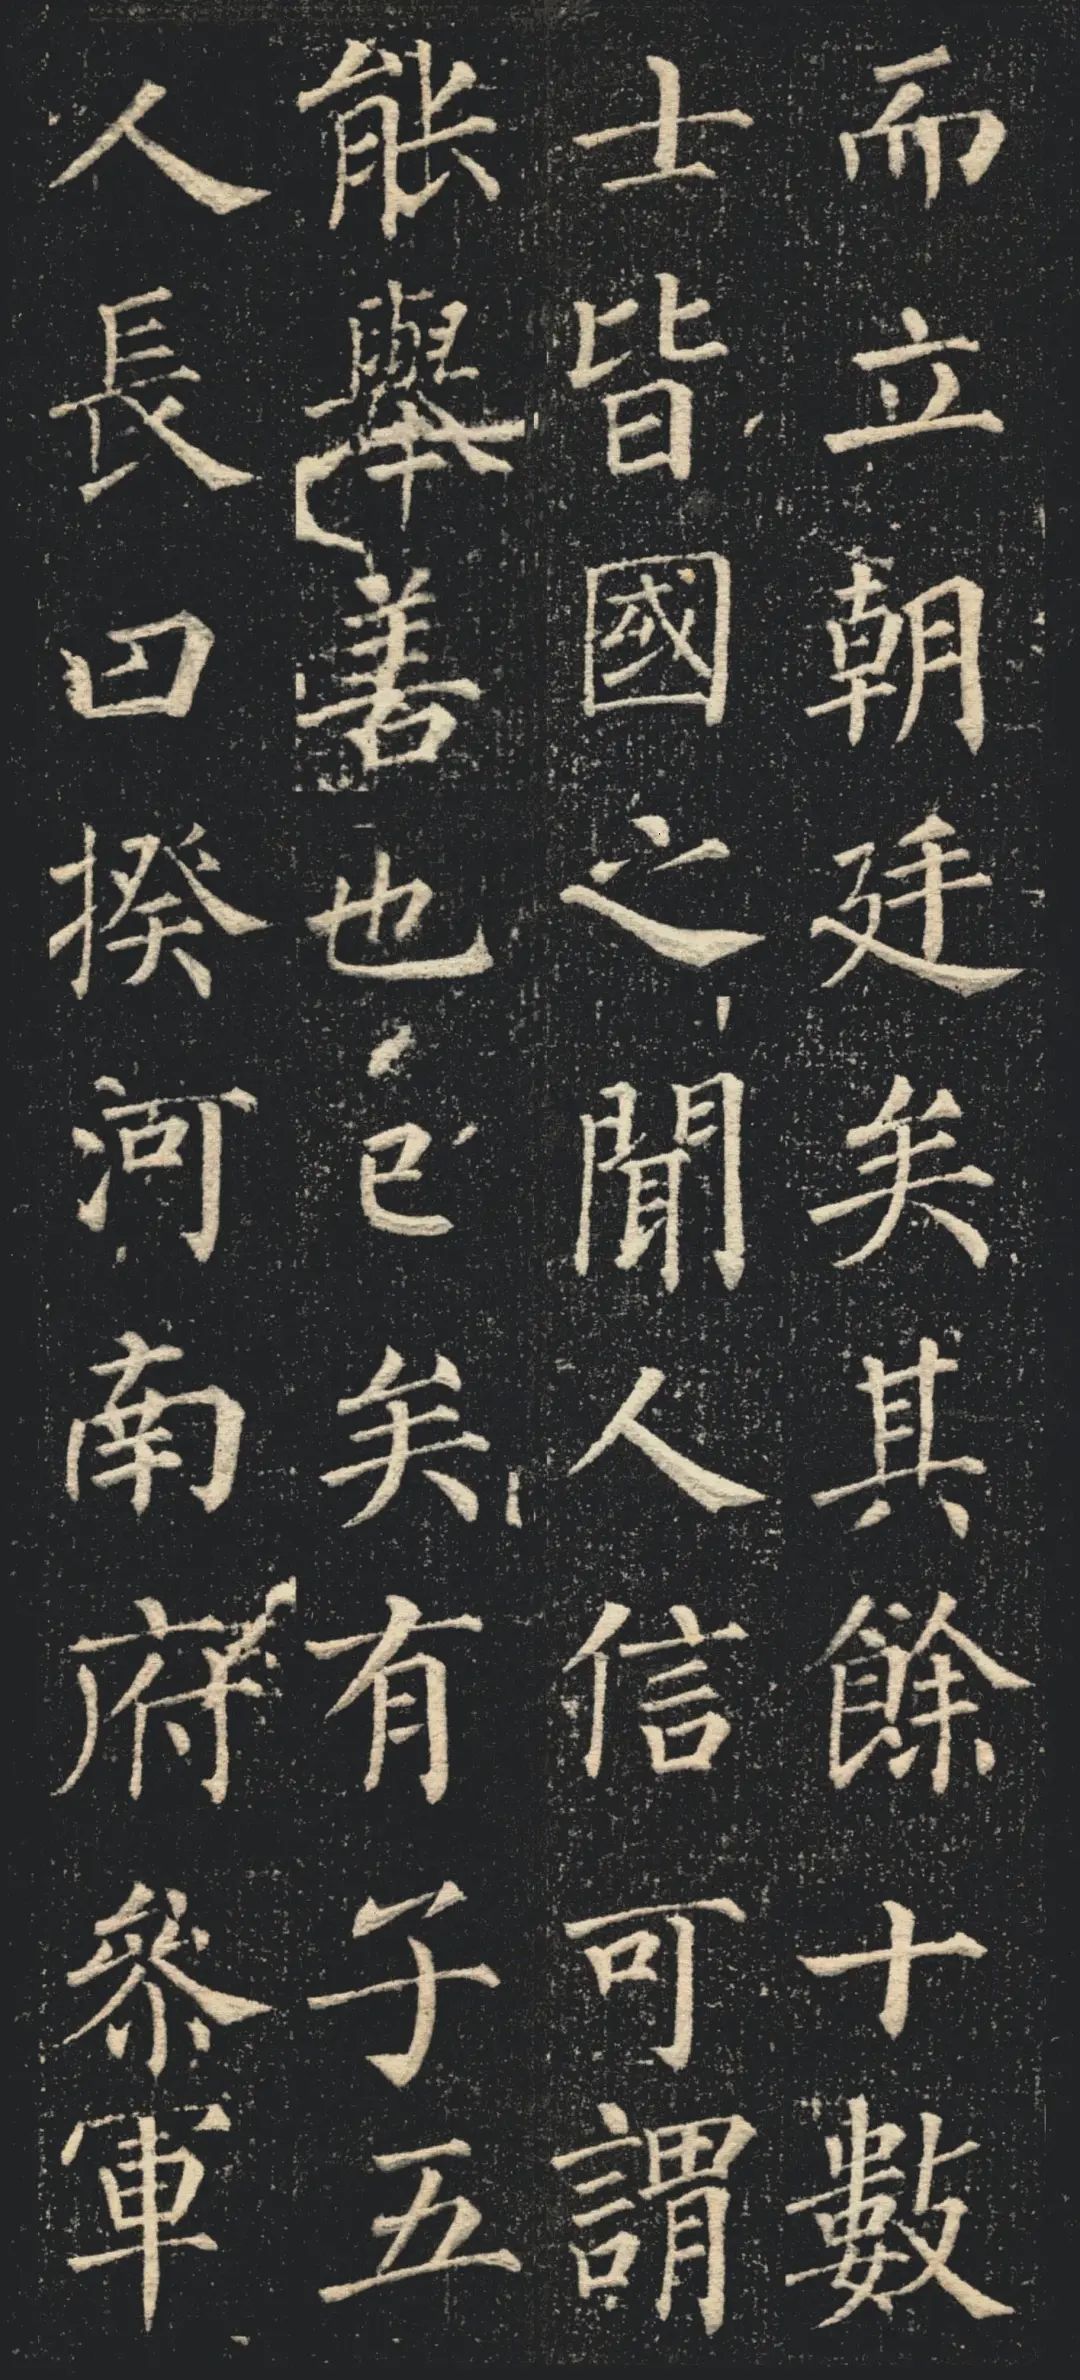 而立朝廷矣其餘十數
士皆國之聞人信可謂
能舉善也已矣有子五
人長曰揆河南府參軍